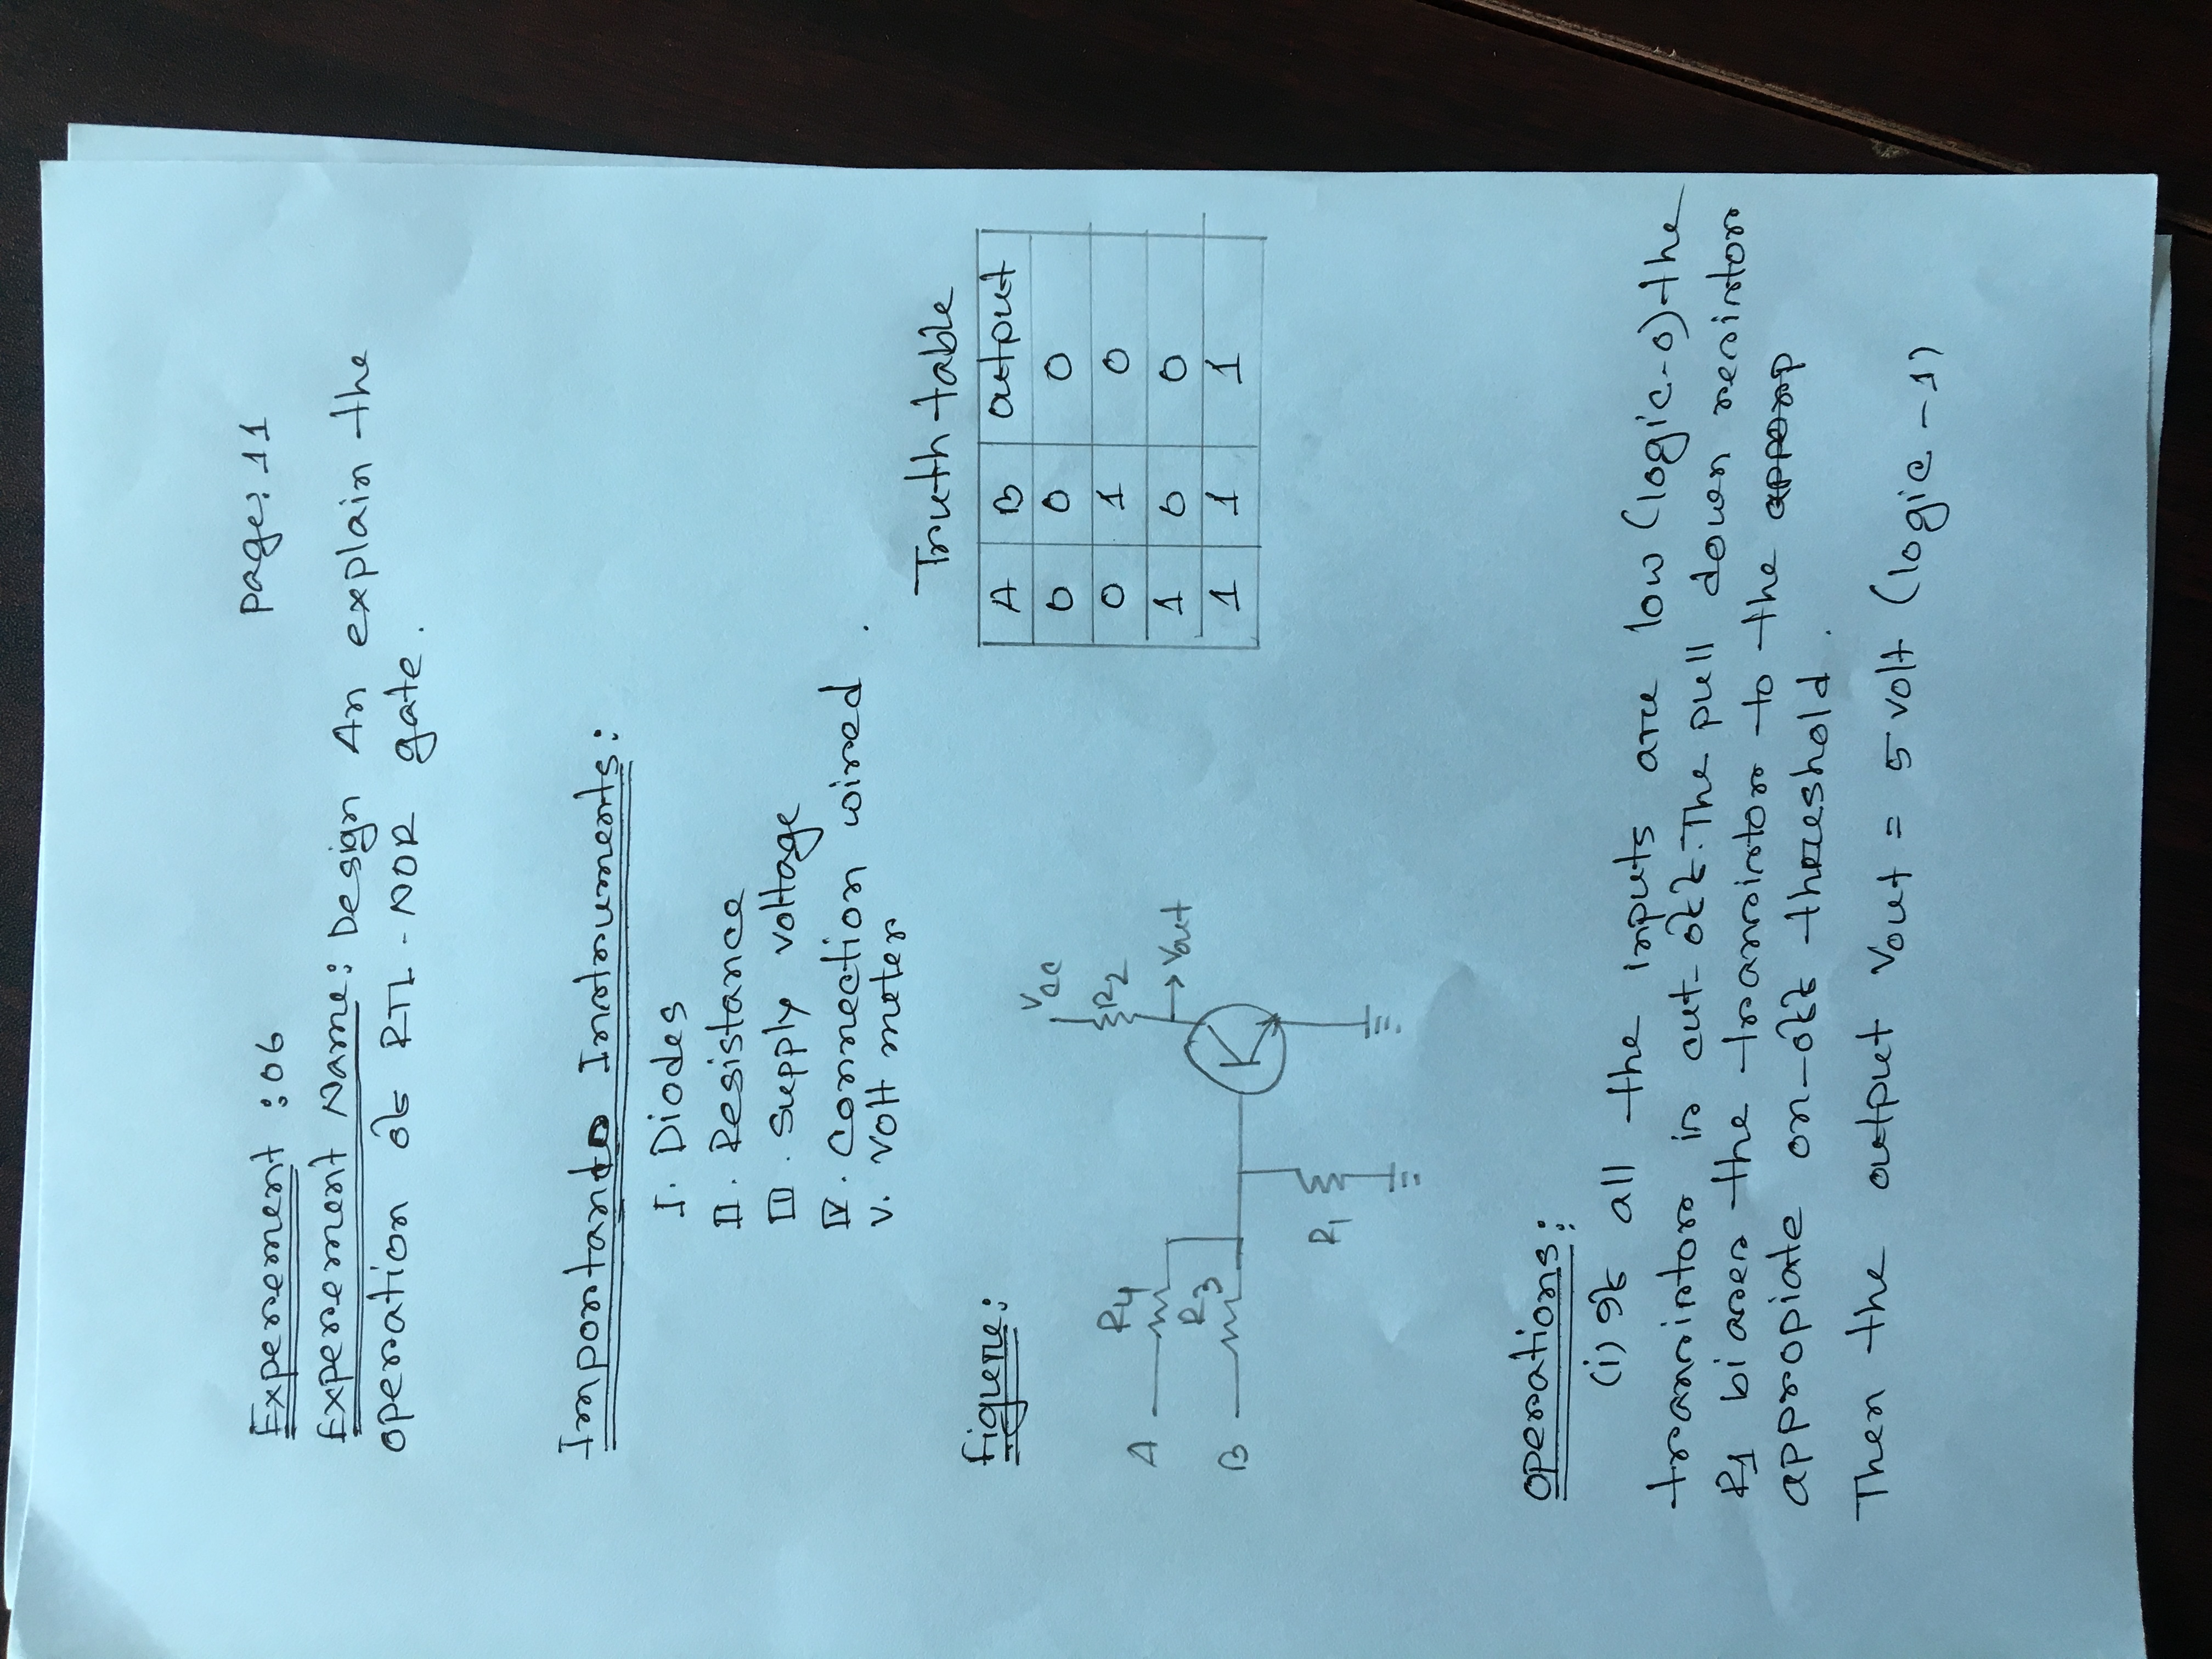 page: 11
Experement : 06
Experement Name: Design An explain the
operation of RTL-NOR gate.
Importants Instruments:
I. Diodes
II. Resistance
III. Supply voltage
IV. Connection wired.
V. Volt meter
Truth table
A B output
0 0 0
0 1 0
1 0 0
1 1 1
figure:
Vcc
R2
Vout
A R4
B R3
R1
operations:
(i) If all the inputs are low (logic-0) the
transistor is cut-off. The pull down resistor
R1 biases the transistor to the
appropiate on-off threshold.
Then the output Vout = 5 volt (logic-1)